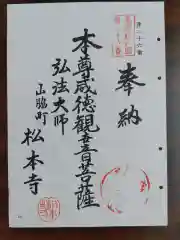 第二十六番
奉納
本尊威徳観世音菩薩
弘法大師
山脇町
松本寺